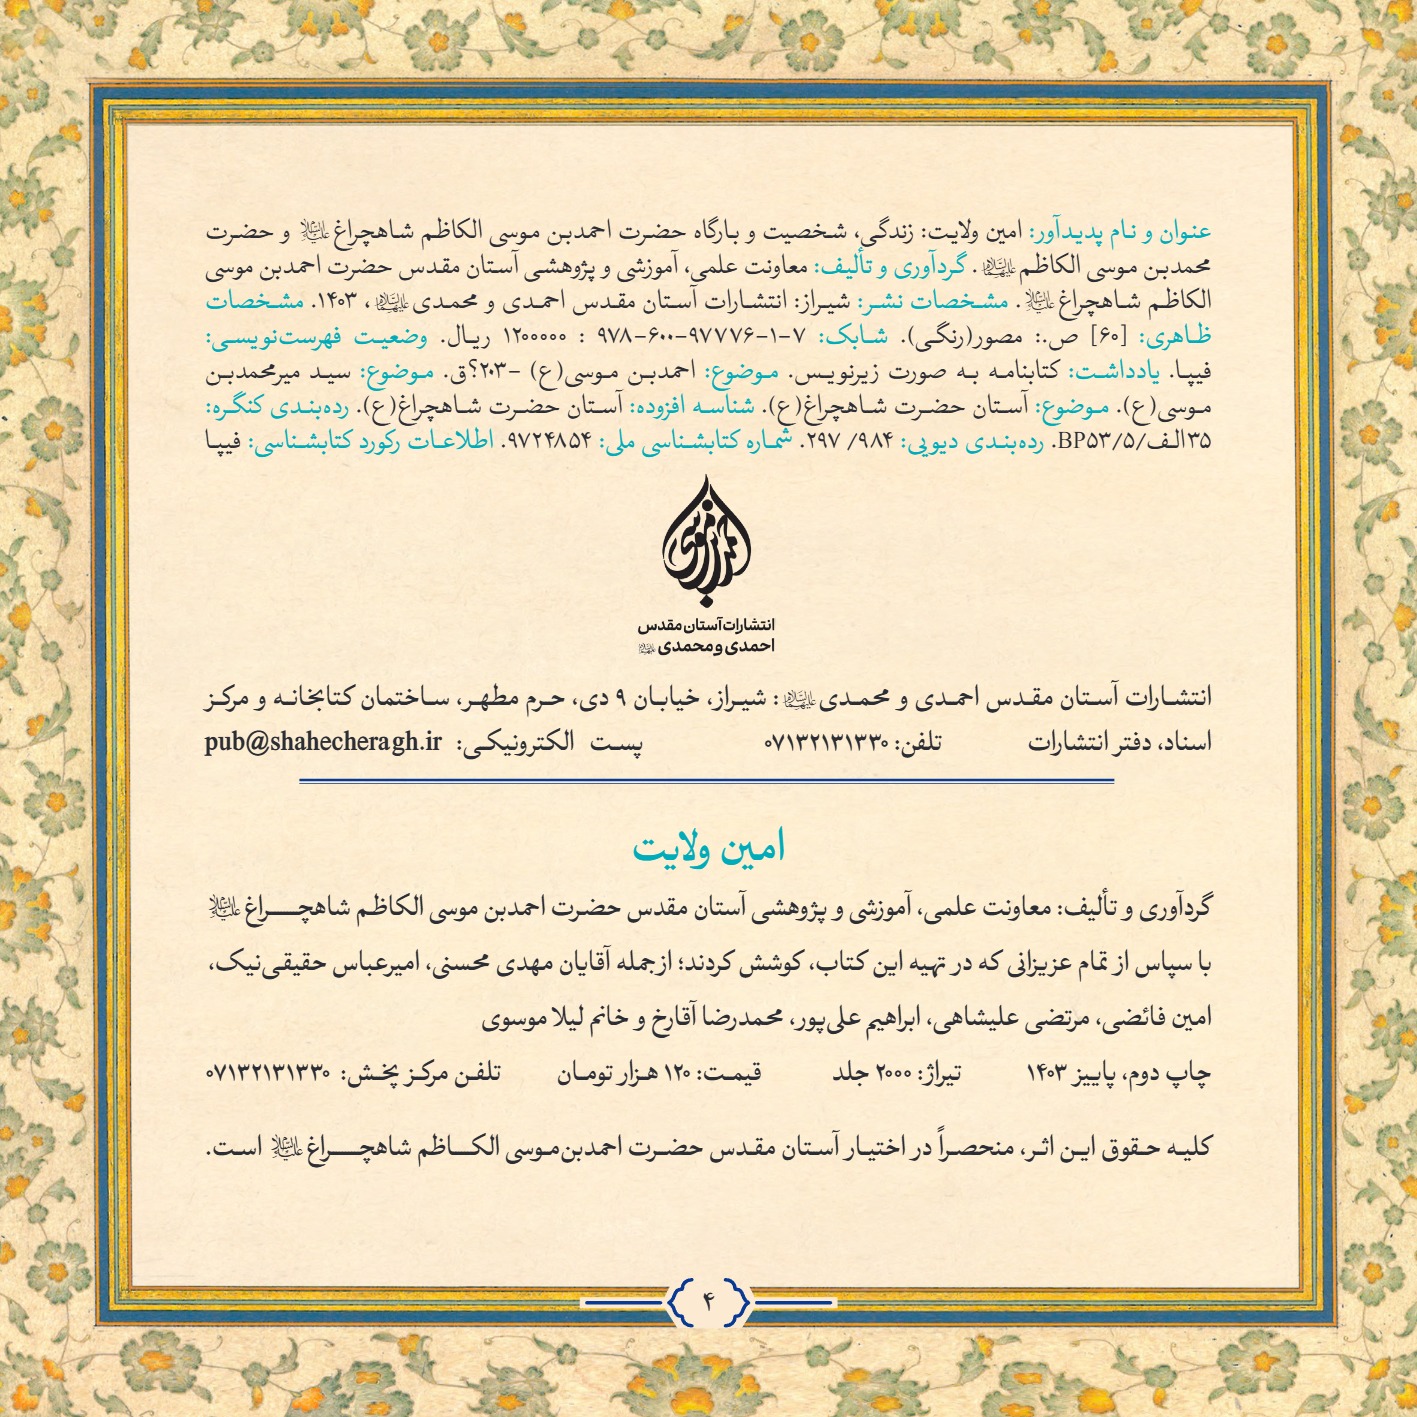 عنوان و نام پدیدآور: امین ولایت: زندگی، شخصیت و بارگاه حضرت احمدبن موسی الکاظم شاهچراغ علیه‌السلام و حضرت
محمدبن موسی الکاظم علیهماالسلام. گردآوری و تألیف: معاونت علمی، آموزشی و پژوهشی آستان مقدس حضرت احمدبن موسی
الکاظم شاهچراغ علیه‌السلام. مشخصات نشر: شیراز: انتشارات آستان مقدس احمدی و محمدی علیهماالسلام، ۱۴۰۳. مشخصات
ظاهری: [۶۰] ص.: مصور(رنگی). شابک: ۷-۱-۹۷۷۷۶-۶۰۰-۹۷۸ : ۱۲۰۰۰۰۰ ریال. وضعیت فهرست‌نویسی:
فیپا. یادداشت: کتابنامه به صورت زیرنویس. موضوع: احمدبن موسی(ع) -۲۰۳؟ق. موضوع: سید میرمحمدبن
موسی(ع). موضوع: آستان حضرت شاهچراغ(ع). شناسه افزوده: آستان حضرت شاهچراغ(ع). رده‌بندی کنگره:
۳۵الف/۵/BP۵۳. رده‌بندی دیویی: ۹۸۴/ ۲۹۷. شماره کتابشناسی ملی: ۹۷۲۴۸۵۴. اطلاعات رکورد کتابشناسی: فیپا
احمد بن موسی
انتشارات آستان مقدس
احمدی و محمدی علیهماالسلام
انتشارات آستان مقدس احمدی و محمدی علیهماالسلام: شیراز، خیابان ۹ دی، حرم مطهر، ساختمان کتابخانه و مرکز
اسناد، دفتر انتشارات تلفن: ۰۷۱۳۲۱۳۱۳۳۰ پست الکترونیکی: pub@shahecheragh.ir
امین ولایت
گردآوری و تألیف: معاونت علمی، آموزشی و پژوهشی آستان مقدس حضرت احمدبن موسی الکاظم شاهچراغ علیه‌السلام
با سپاس از تمام عزیزانی که در تهیه این کتاب، کوشش کردند؛ ازجمله آقایان مهدی محسنی، امیرعباس حقیقی‌نیک،
امین فائضی، مرتضی علیشاهی، ابراهیم علی‌پور، محمدرضا آقارخ و خانم لیلا موسوی
چاپ دوم، پاییز ۱۴۰۳ تیراژ: ۲۰۰۰ جلد قیمت: ۱۲۰ هزار تومان تلفن مرکز پخش: ۰۷۱۳۲۱۳۱۳۳۰
کلیه حقوق این اثر، منحصراً در اختیار آستان مقدس حضرت احمدبن‌موسی الکاظم شاهچراغ علیه‌السلام است.
۴